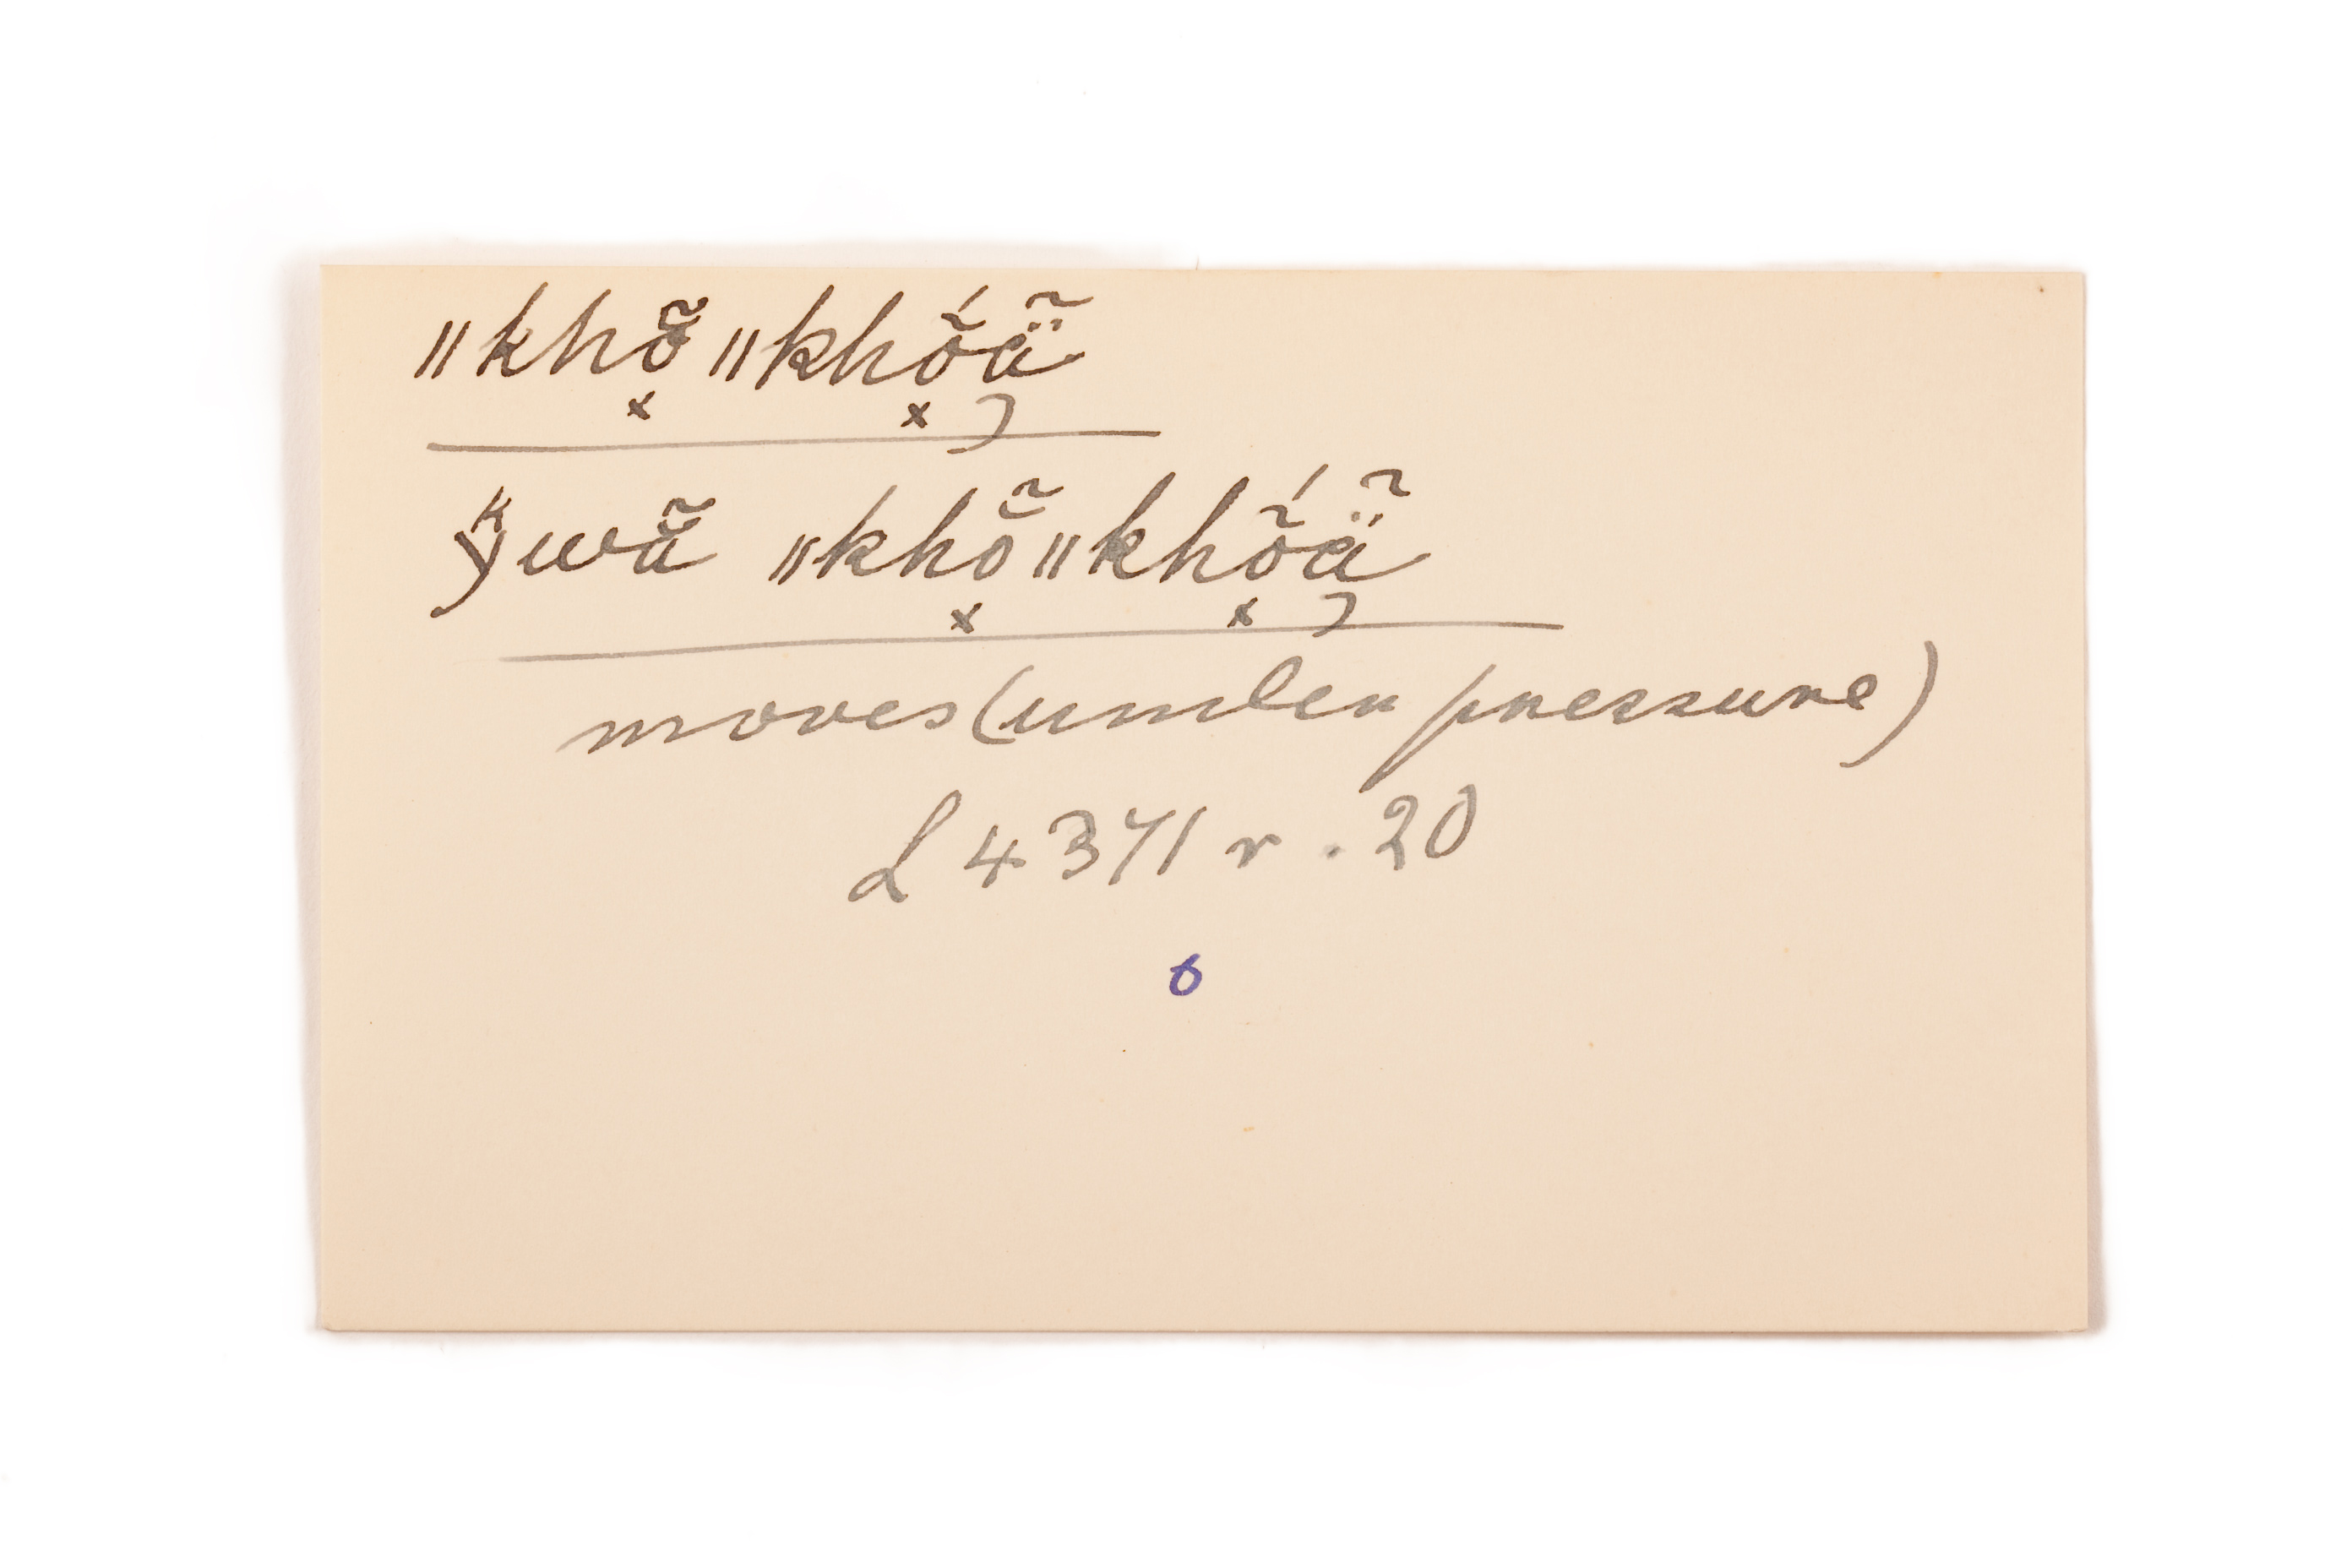 ǁkhō̃̆ǁkhṍä̃
ʞwā̃ ǁkhō̃̆ǁkhṍä̃
moves (under pressure)
L 4371 r. 20
6